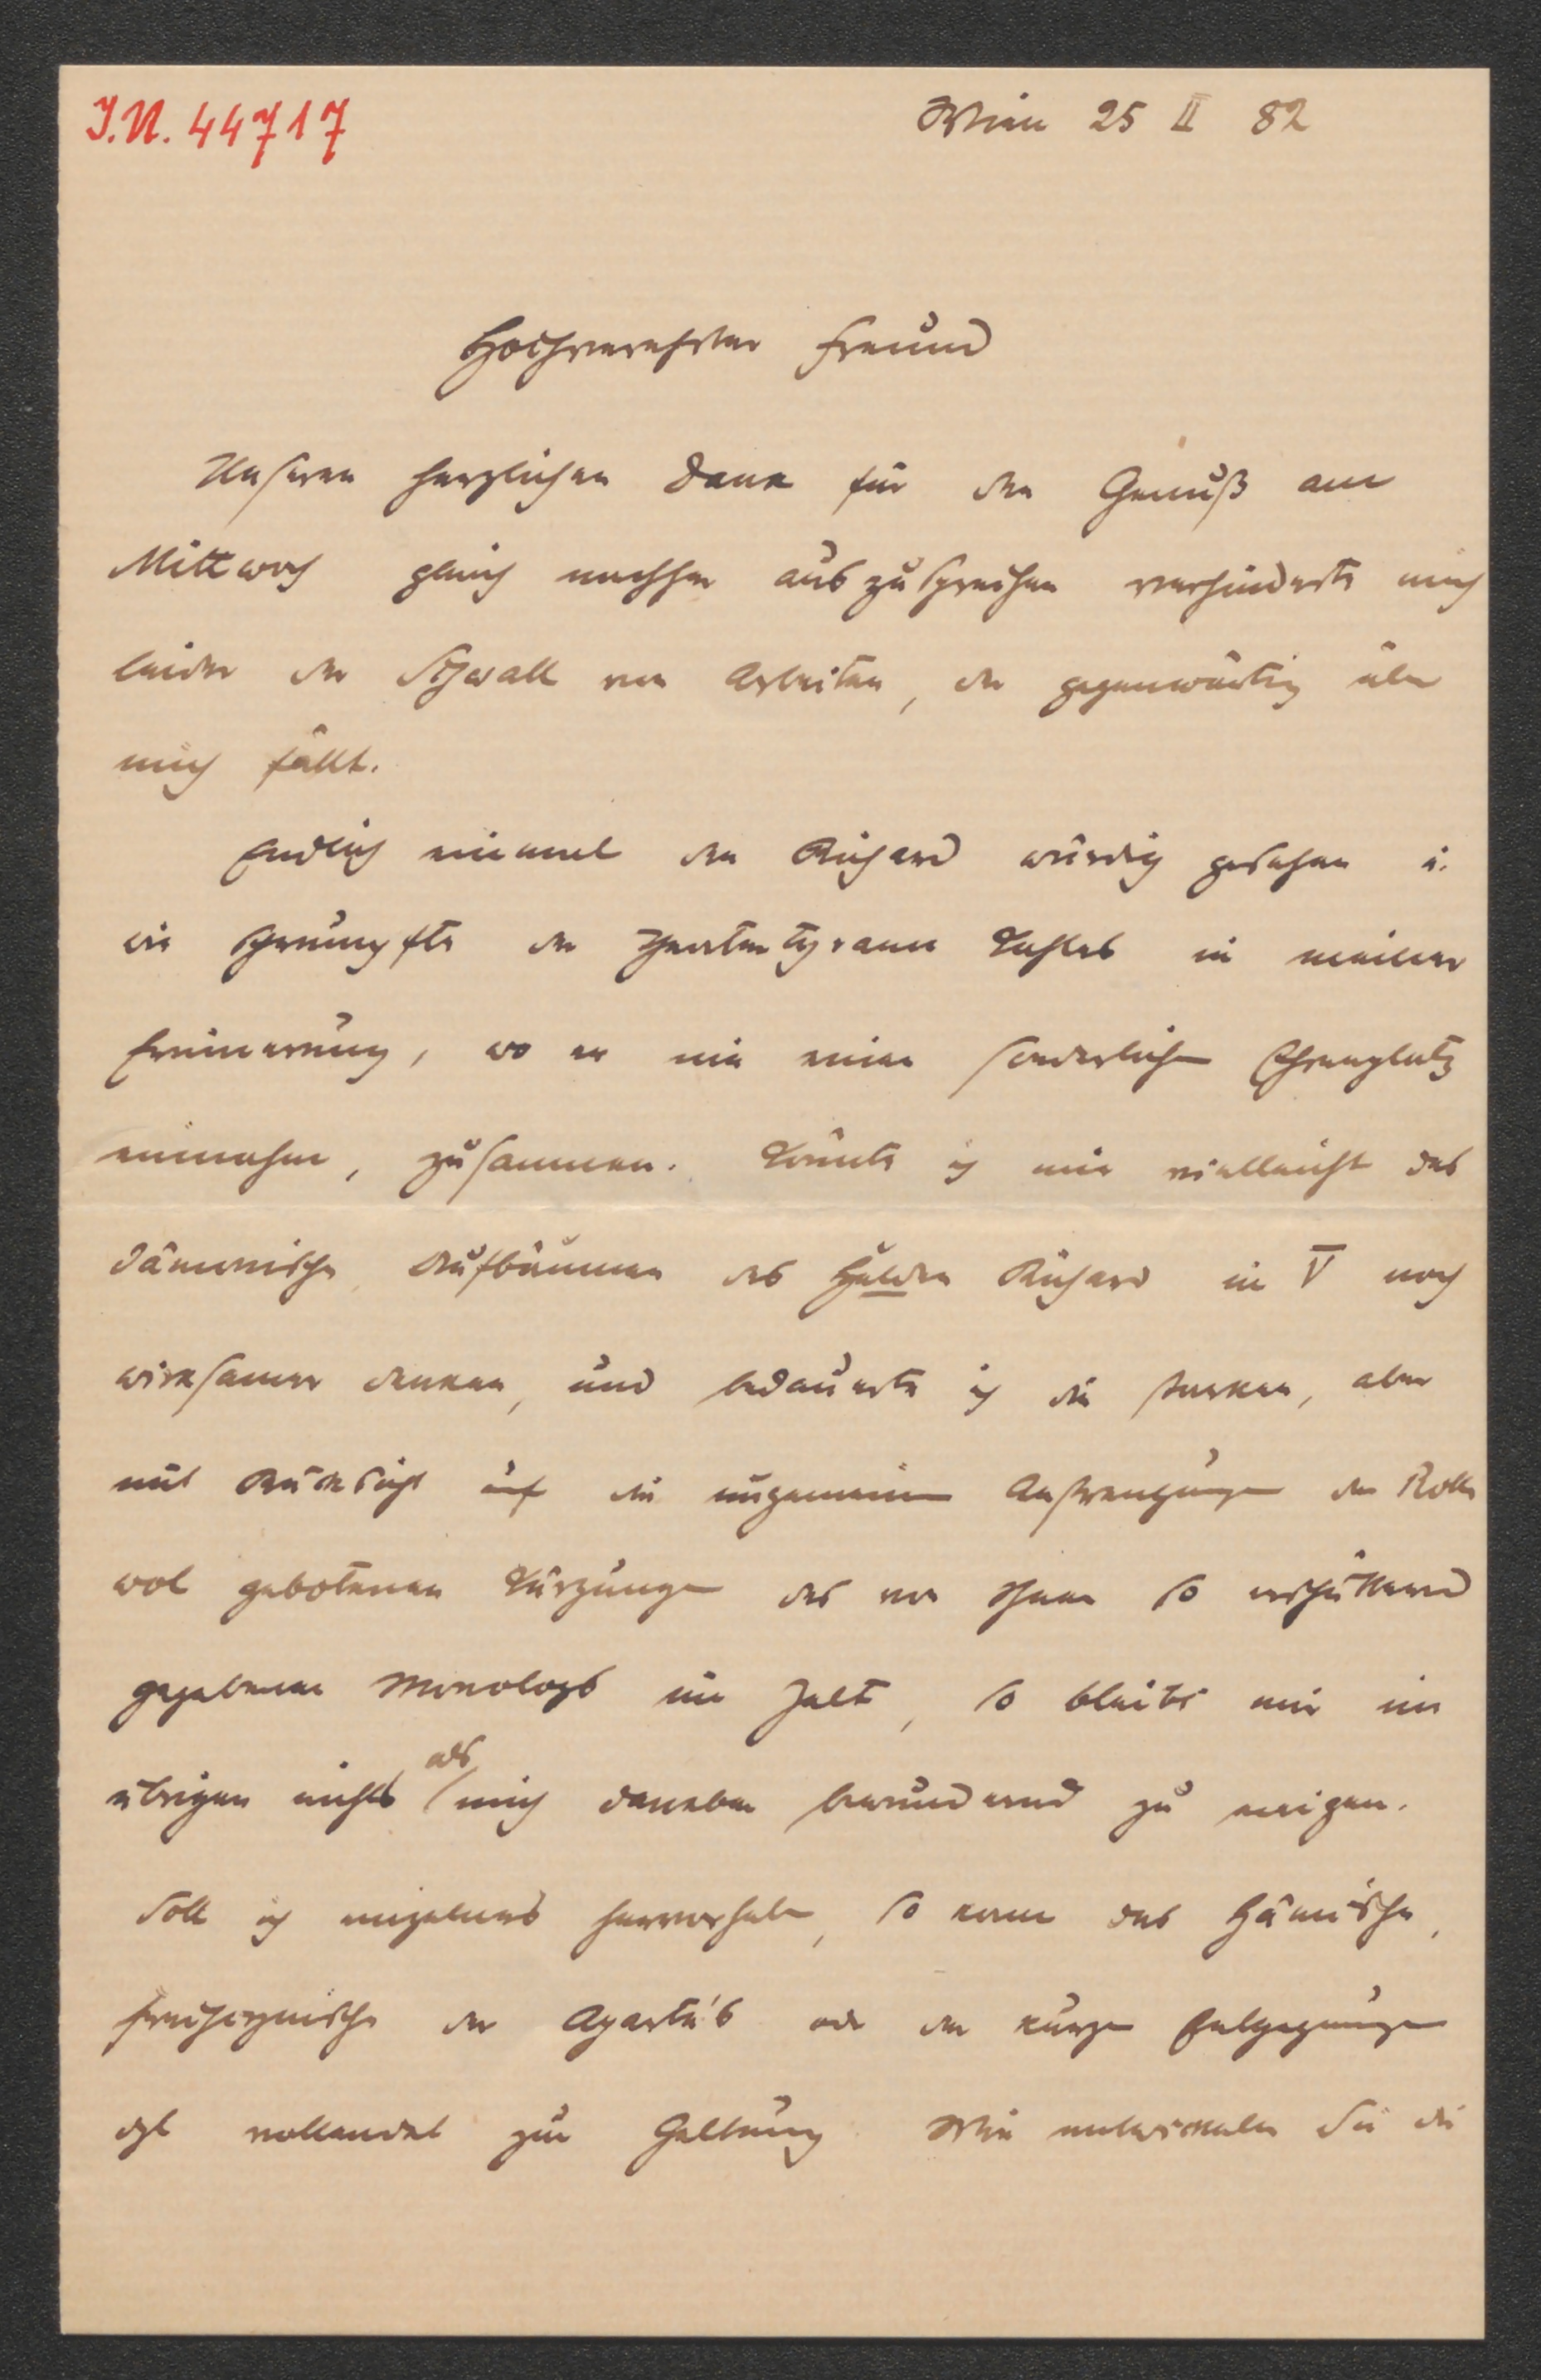 I.N. 44717
Wien 25 II 82
Hochverehrter Freund
Unseren herzlichen Dank für den Genuß am
Mittwoch gleich nachher auszusprechen verhinderte mich
leider der Schwall von Arbeiten, der gegenwärtig über
mich fällt.
Endlich einmal den Richard würdig gesehen u.
wie schrumpfte der Theatertyrann in meiner
Erinnerung, wo er nie einen sonderlichen Ehrenplatz
einnahm, zusammen. Könnte ich mir vielleicht das
dämonische Aufbäumen des Helden Richard in V noch
wirksamer denken, und bedauerte ich die starken, aber
mit Rücksicht auf die ungemeinen Anstrengungen der Rolle
wol gebotenen Kürzungen des von Ihnen so erschütternd
gegebenen Monologs im Zelt, so bleibt mir im
übrigen nichts als mich daneben bewundernd zu neigen.
Soll ich einzelnes hervorheben, so kam das Hämische,
der Aparté's oder der kurzen Entgegnungen
vollendet zur Geltung Wie entwickelten Sie die